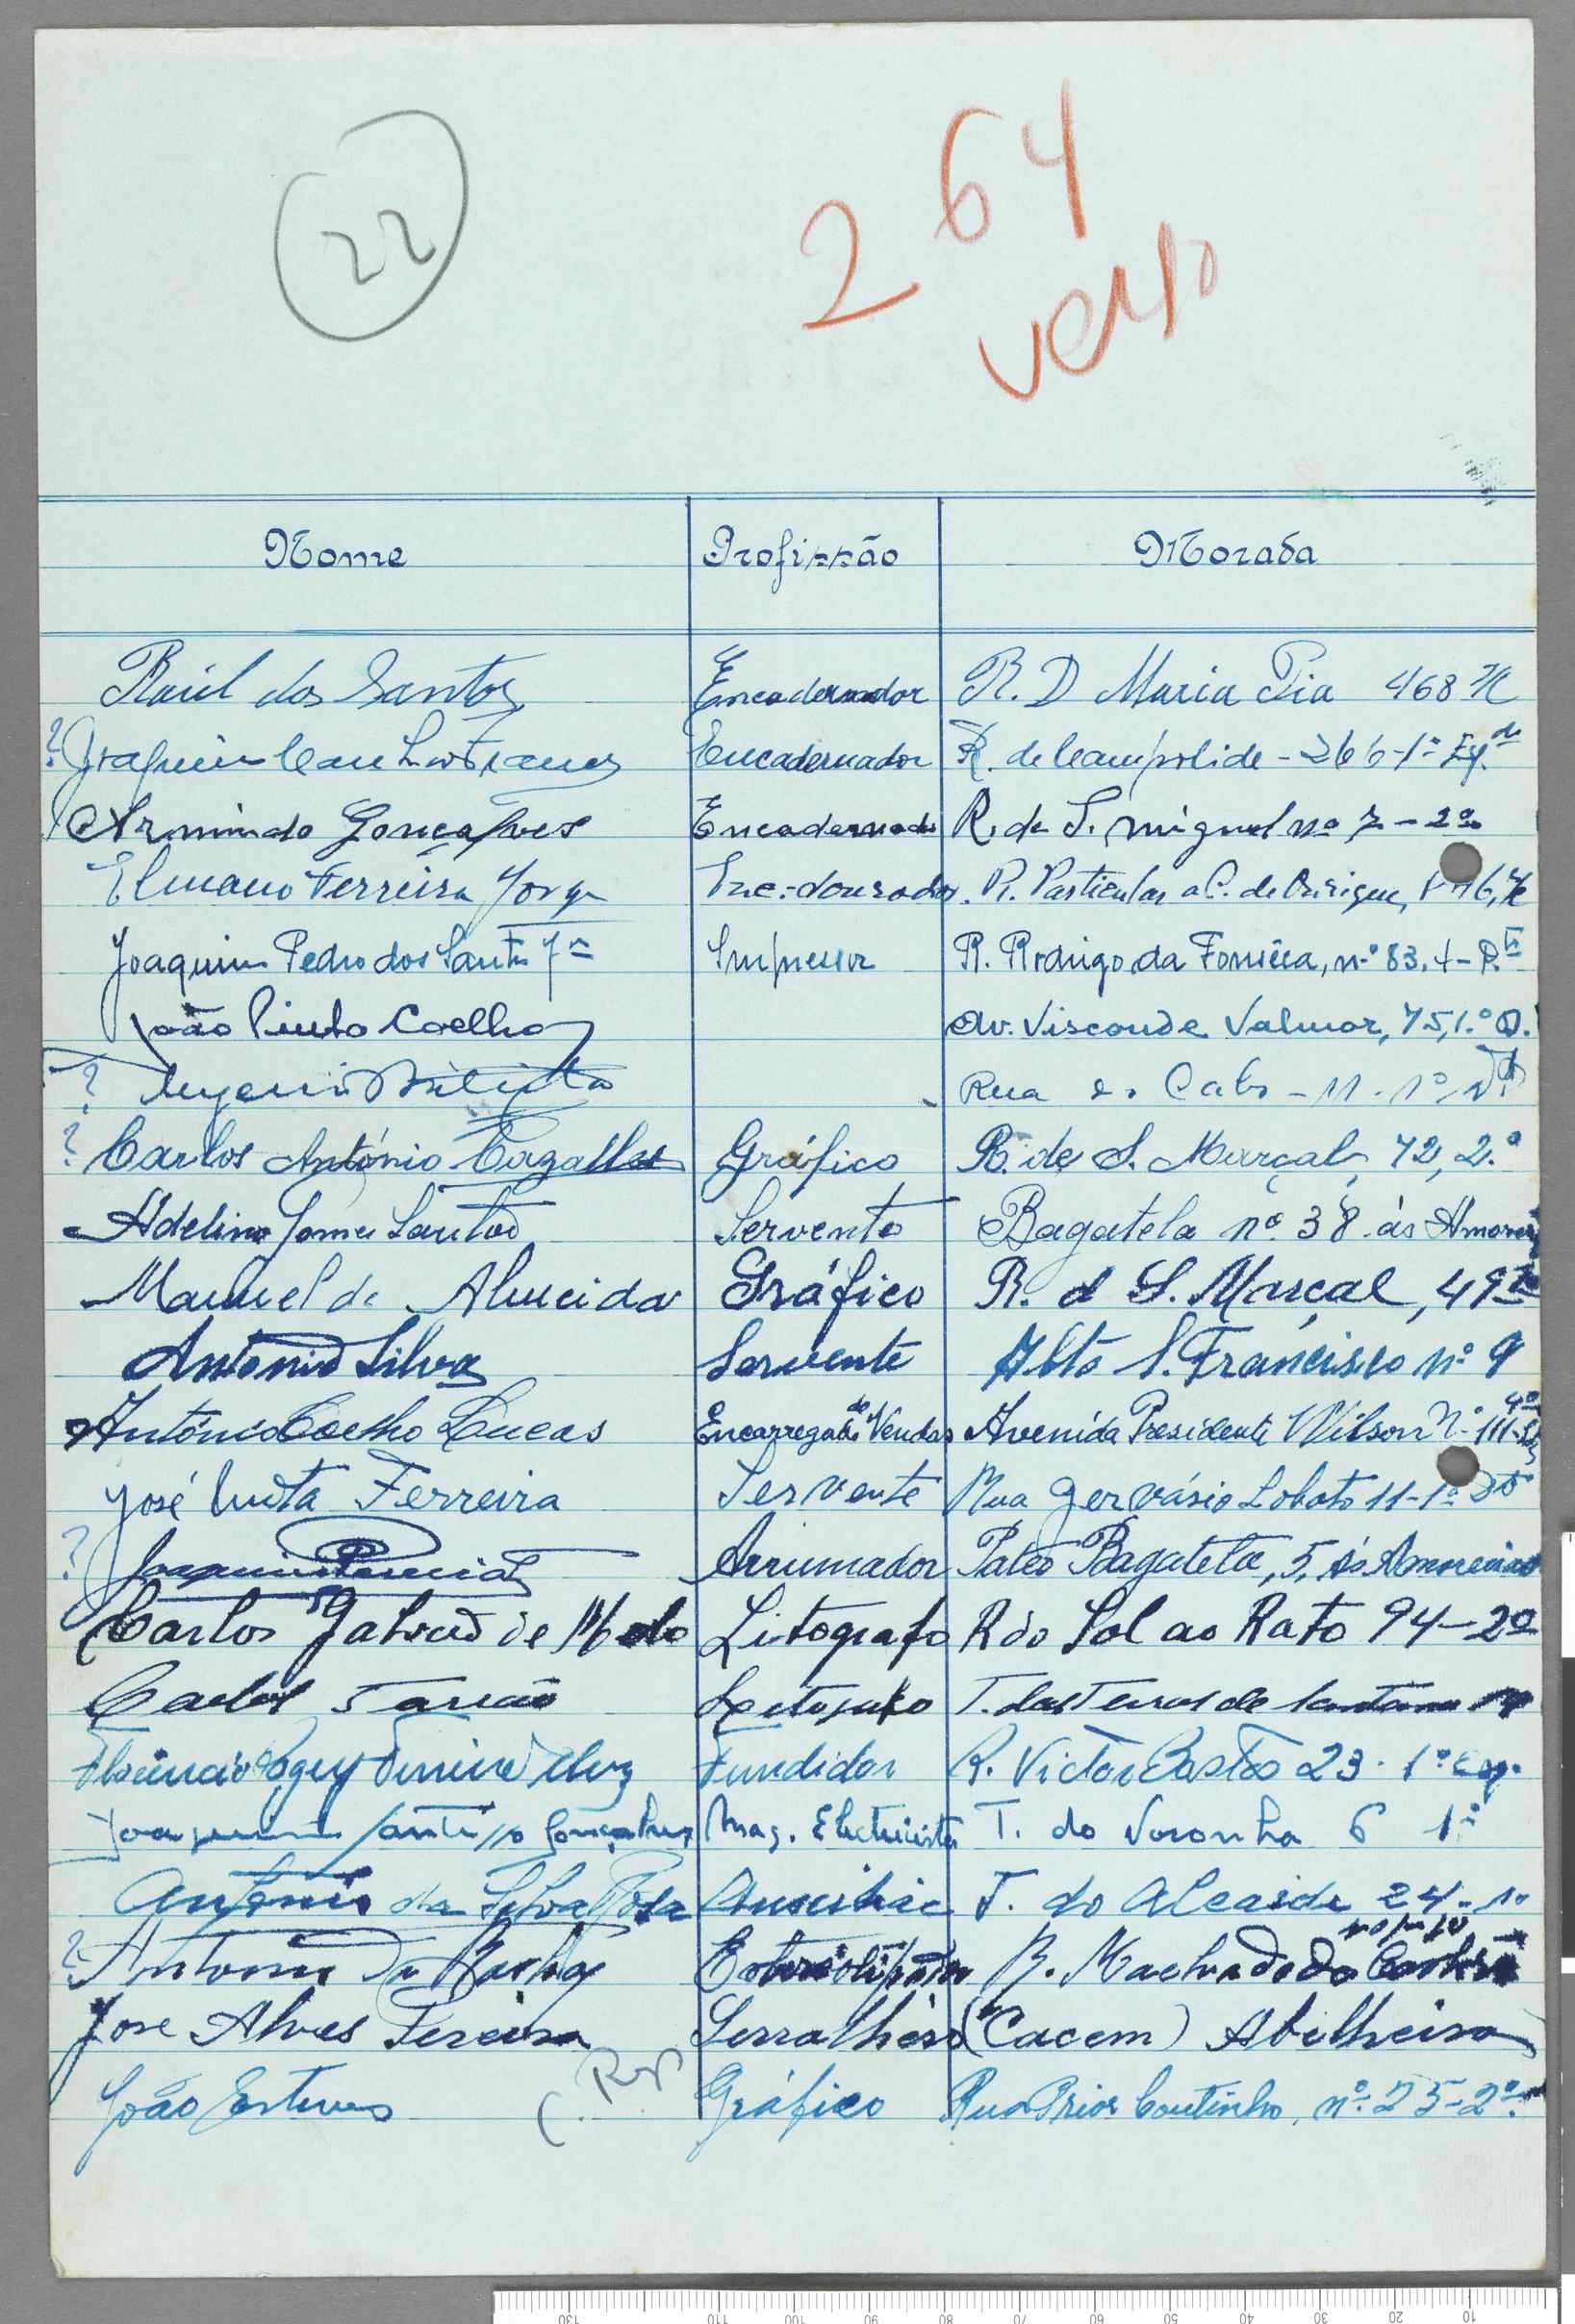 22
264
verso
Nome Profissão Morada
Raúl dos Santos Encadernador R. D Maria Pia 468
? Encadernador R. de Campolide - 266-1º Esq.
Armindo Gonçalves Encadernador R. de S. Miguel nº 7 - 2º
Elmano Ferreira Jorge Enc.-dourador R. Particular a C. de Ourique,
Joaquim Pedro dos Santos Jor Impressor R. Rodrigo da Fonseca, n.º 83, 4-
João Pinto Coelho Av. Visconde Valmor, 75, 1.º D.
? Rua do Cabo - 11 - 1º
? Carlos António Gráfico R. de S. Marçal, 72, 2.º
Adelino Gomes Santos Servente Bagatela nº 38 ás Amoreiras
Manuel de Almeida Gráfico R. de S. Marçal, 49
António Silva Servente Alto S. Francisco nº 9
António Coelho Lucas Encarregado de Vendas Avenida Presidente Wilson Nº 111 4º
José Ferreira Servente Rua Gervásio Lobato 11-1º Dtº
? Joaquim Arrumador Páteo Bagatela, 5, ás Amoreiras
Carlos de Litografo R do Sol ao Rato 94-2º
Carlos T. das Terras de Santana
Fundidor R. Victor Bastos 23 - 1º Esq.
Joaquim Gonçalves Maq. Electricista T. do Noronha 6 1º
António da Silva Rosa T. do Alcaide 24 - 1º
? António da R. Machado de Castro
José Alves Pereira Serralheiro (Cacem) Abelheira
João Esteves Gráfico Rua Prior Coutinho, nº 25-2º
130 110 100 90 80 70 60 50 40 30 20 10